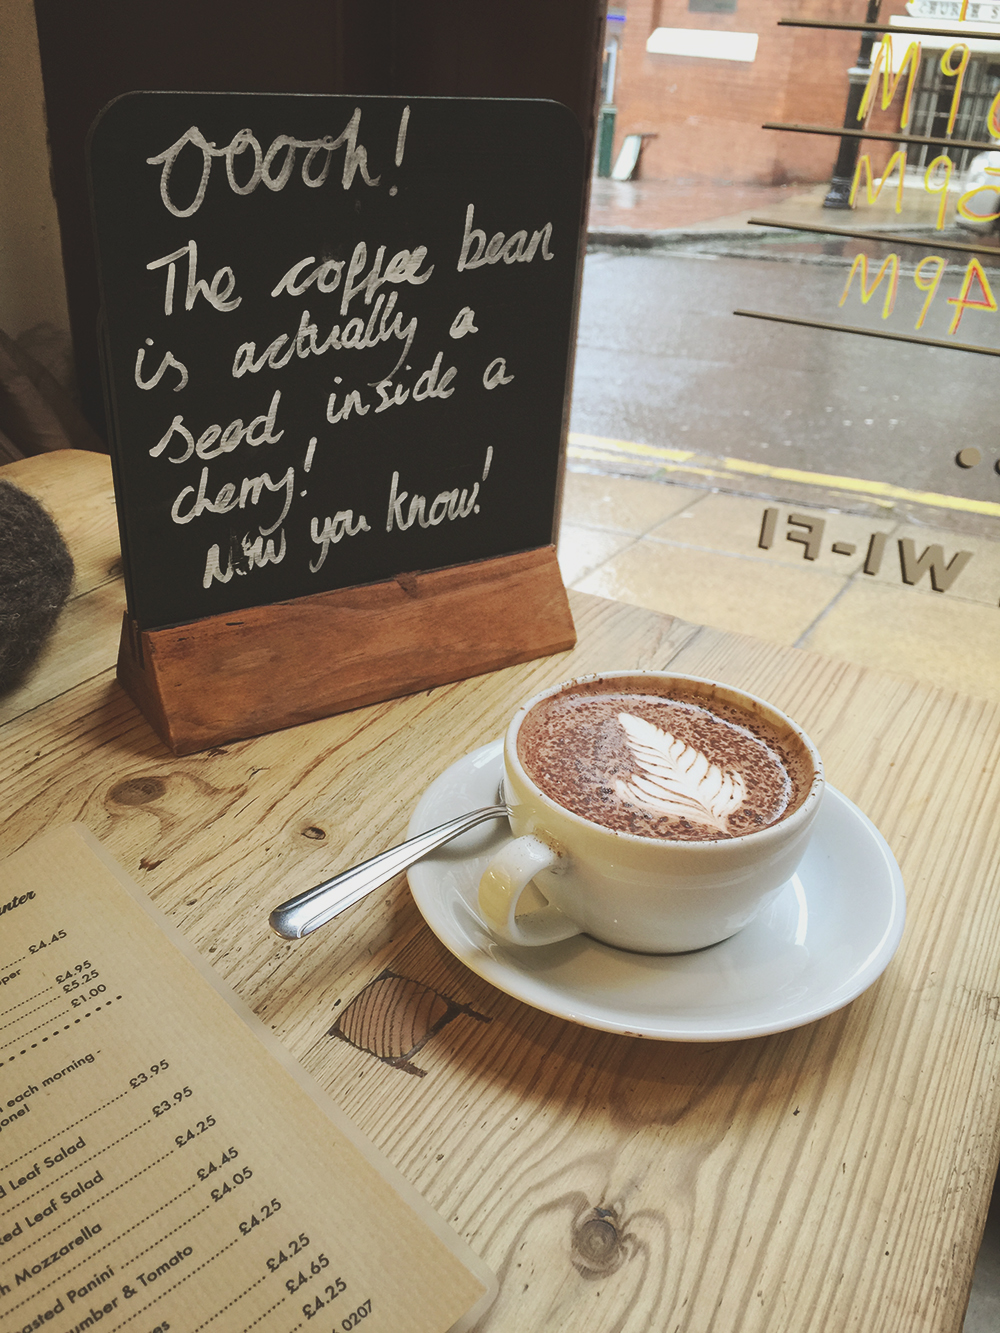 Ooooh!
The coffee bean
is actually a
seed inside a
cherry!
Now you know!
CHURCH S
9PM
5PM
4PM
WI-FI
£4.45
£4.95
£5.25
£1.00
each morning -
£3.95
Leaf Salad £3.95
Leaf Salad £4.25
Mozzarella £4.45
£4.05
Panini £4.25
& Tomato £4.25
£4.65
£4.25
0207